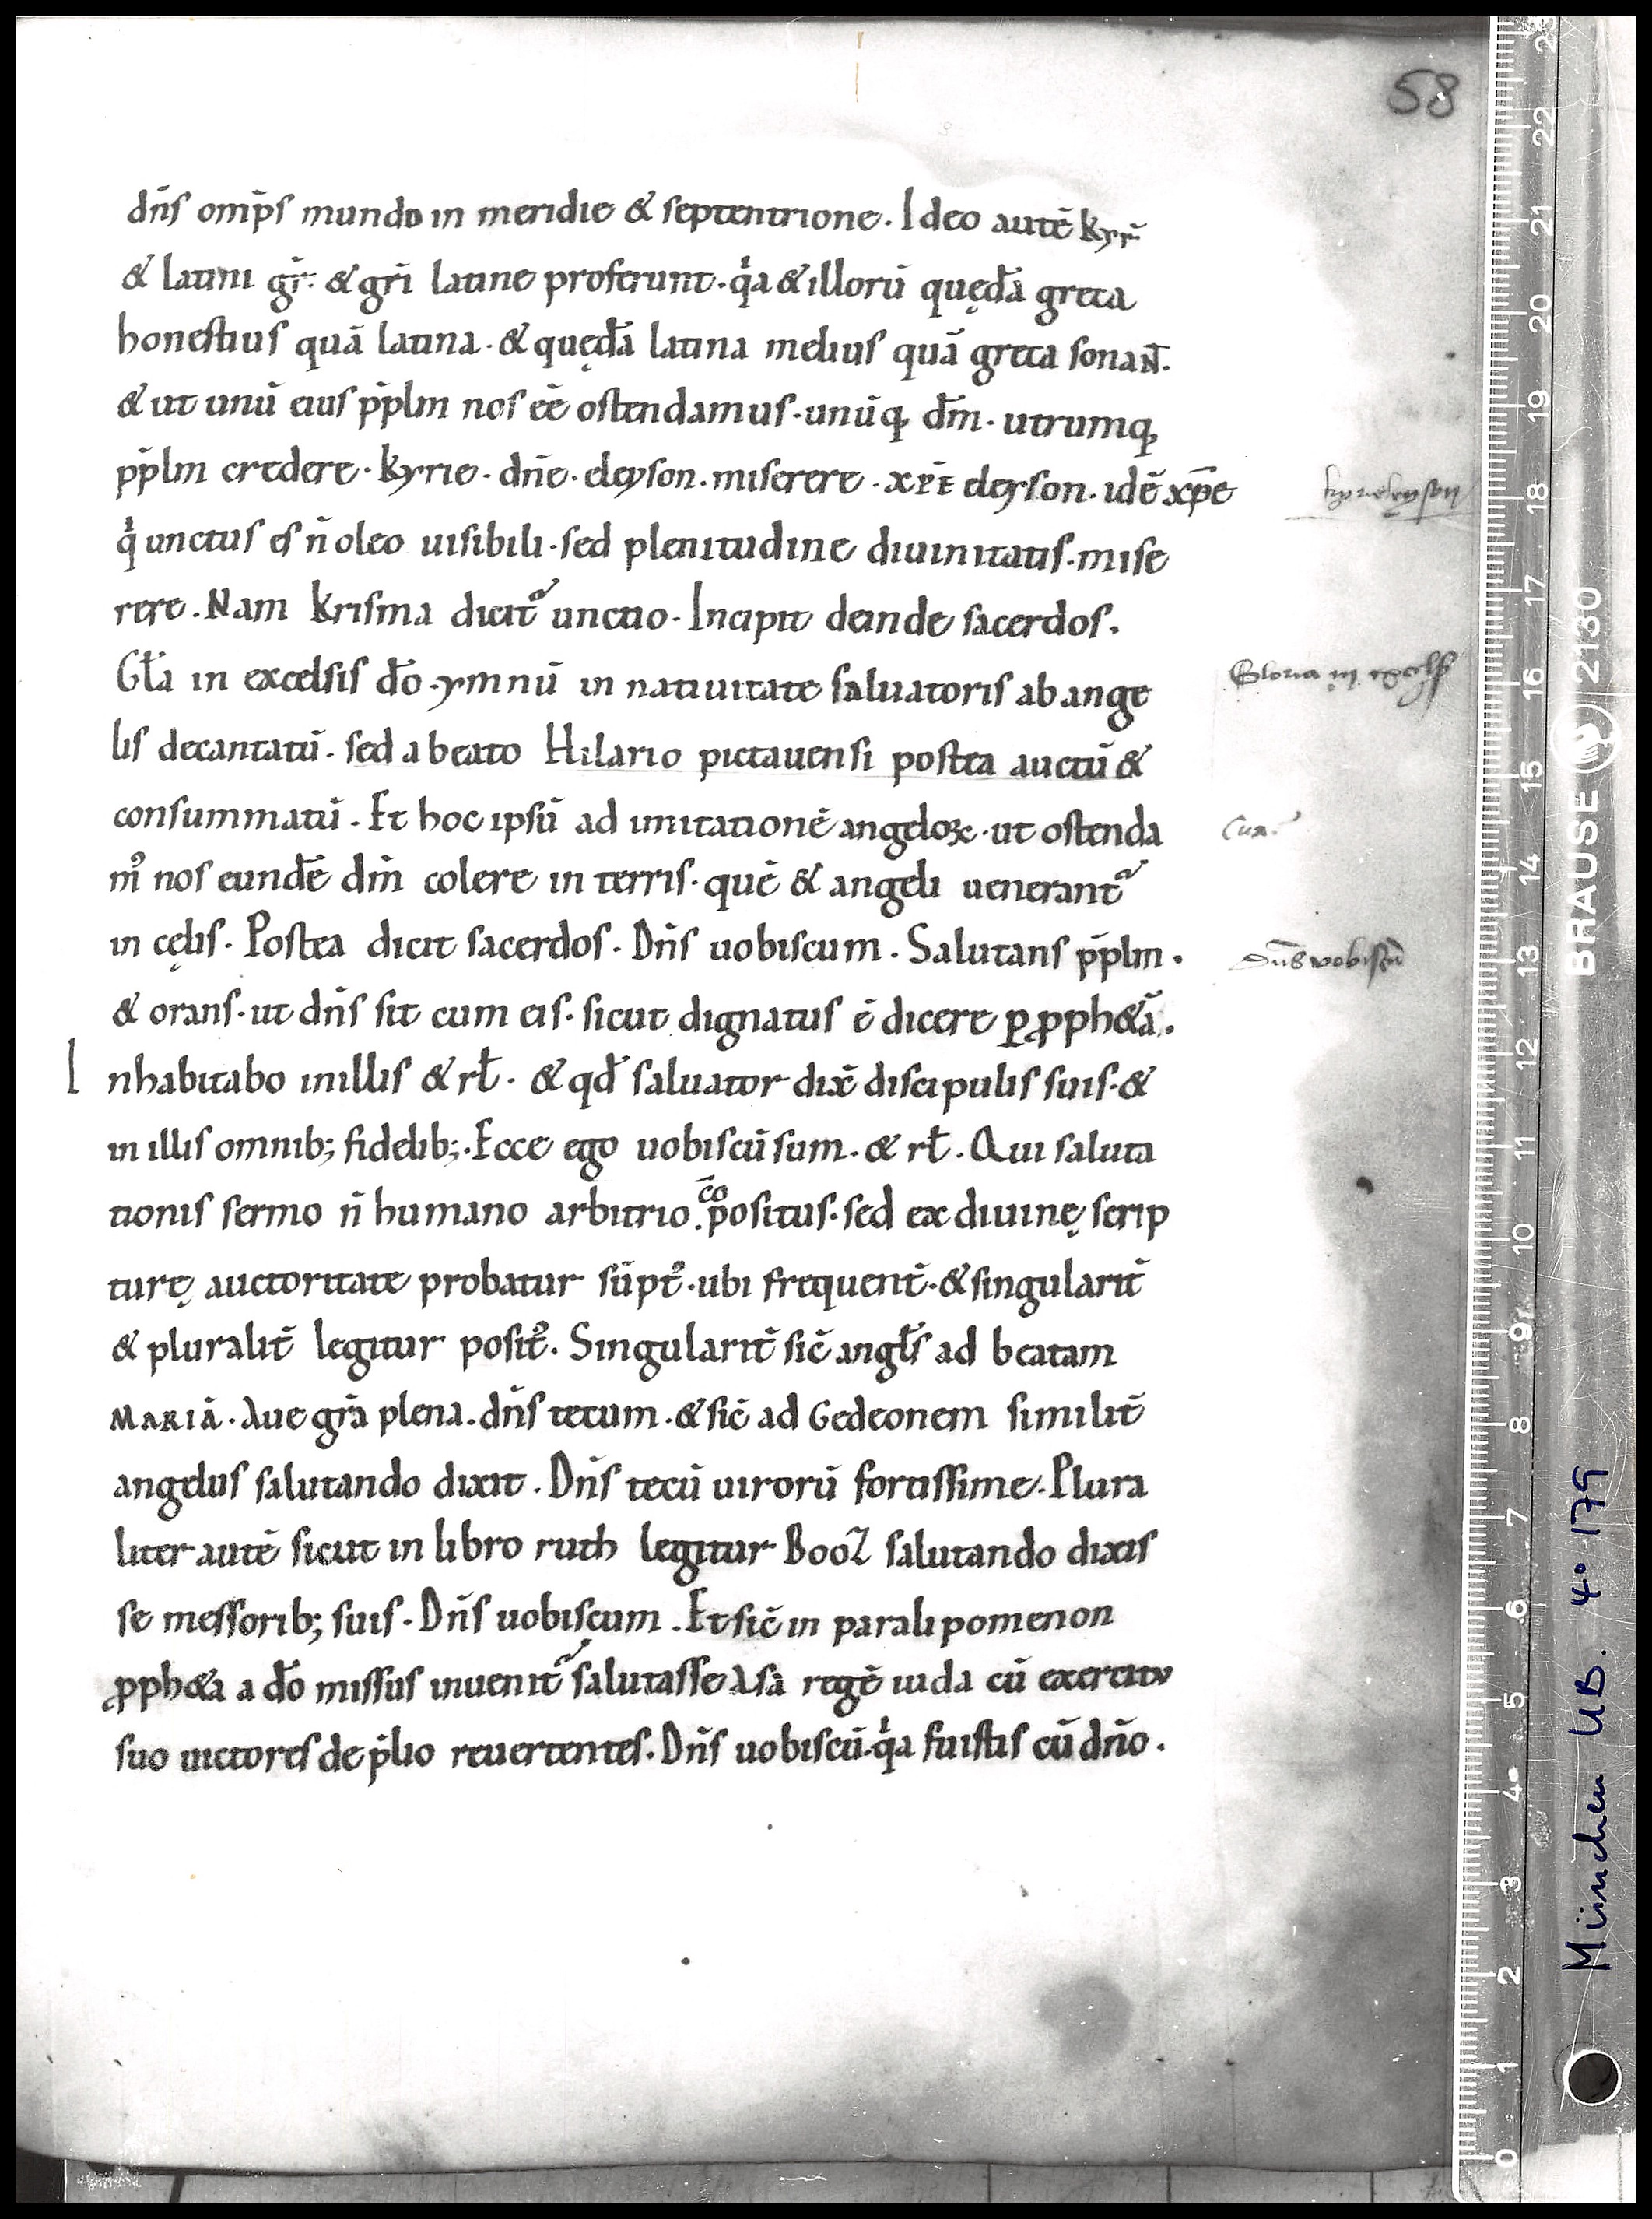 58
dn̄s omp̄s mundo in meridie & septentrione. Ideo autē kyrr̄
& latini gr̄. & grī latine proferunt. qͥa & illorū quędā greca
honestius quā latina. & quędā latina melius quā greca sonant̄.
& ut unū eius pp̄lm nos eē ostendamus. unūq; dm̄. utrumq;
pp̄lm credere. kyrie. dn̄e. eleyson. miserere. xp̄e eleyson. idē xp̄e
qͥ unctus es n̄ oleo uisibili. sed plenitudine diuinitatis. mise
rere. Nam krisma dicit᷑ unctio. Incipit deinde sacerdos.
Gła in excelsis dō. ymnū in natiuitate saluatoris ab ange
lis decantatū. sed a beato Hilario pictauensi postea auctū &
consummatū. Et hoc ipsū ad imitationē angeloꝝ. ut ostenda
m᷒ nos eundē dm̄ colere in terris. quē & angeli uenerant᷑
in cęlis. Postea dicit sacerdos. Dn̄s uobiscum. Salutans pp̄lm.
& orans. ut dn̄s sit cum eis. sicut dignatus ē dicere ꝑ ꝓph&ā.
Inhabitabo in illis & rł. & qd̄ saluator dix̄ discipulis suis. &
in illis omnib; fidelib;. Ecce ego uobiscū sum. & rł. Qui saluta
tionis sermo n̄ humano arbitrio. cōpositus. sed ex diuinę scrip
turę auctoritate probatur sūpt᷒. ubi frequent̄. & singularit̄
& pluralit̄ legitur posit᷒. Singularit̄ sic̄ angłs ad beatam
MARIĀ. Aue grā plena. dn̄s tecum. & sic̄ ad Gedeonem similit̄
angelus salutando dixit. Dn̄s tecū uirorū fortissime. Plura
liter autē sicut in libro ruth legitur Booz salutando dixis
se messorib; suis. Dn̄s uobiscum. Et sic̄ in paralipomenon
ꝓph&a a dō missus inuenit᷑ salutasse Asā regē iuda cū exercitu
suo uictores de p̄lio reuertentes. Dn̄s uobiscū. qͥa fuistis cū dn̄o.
kyrieleyson
Gloria in excelß
Dn̄s vobiscū
BRAUSE 2130
München UB. 4° 179
0 1 2 3 4 5 6 7 8 9 10 11 12 13 14 15 16 17 18 19 20 21 22 23